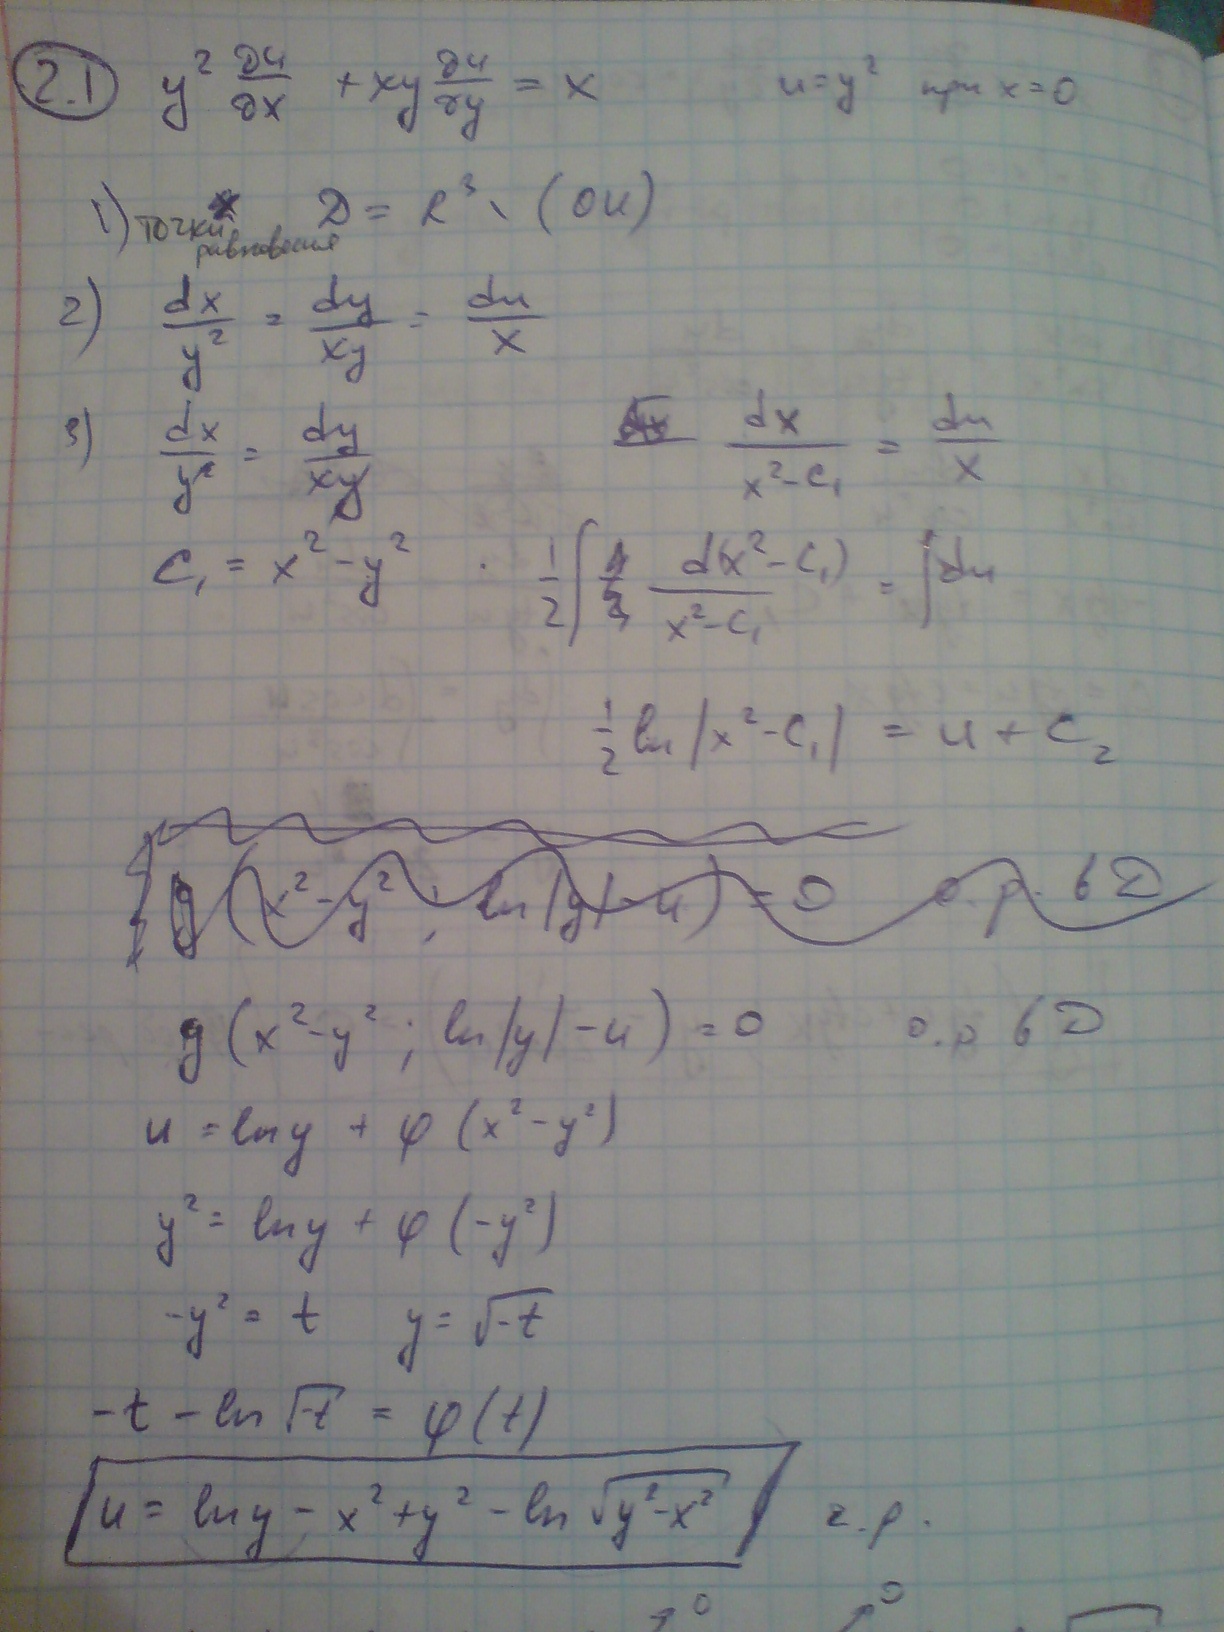 2.1 y² ∂u/∂x + xy ∂u/∂y = x u=y² при x=0
1) точки равновесия D = R³ \ (OU)
2) dx/y² = dy/xy = du/x
3) dx/y² = dy/xy dx/(x²-C₁) = du/x
C₁ = x² - y² 1/2 ∫ d(x²-C₁)/(x²-C₁) = ∫du
1/2 ln|x²-C₁| = u + C₂
g(x²-y²; ln|y|-u) = 0 о.р. в D
g(x²-y²; ln|y|-u) = 0 о.р в D
u = ln y + φ(x²-y²)
y² = ln y + φ(-y²)
-y² = t y = √-t
-t - ln √-t = φ(t)
u = ln y - x² + y² - ln √y²-x² ч.р.